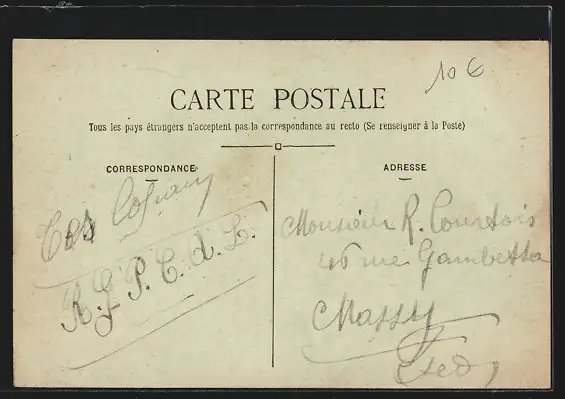 10 €
CARTE POSTALE
Tous les pays étrangers n'acceptent pas la correspondance au recto (Se renseigner à la Poste)
CORRESPONDANCE
ADRESSE
R. G. P. C. A. L.
Monsieur R. Courtois
46 rue Gambetta
Massy